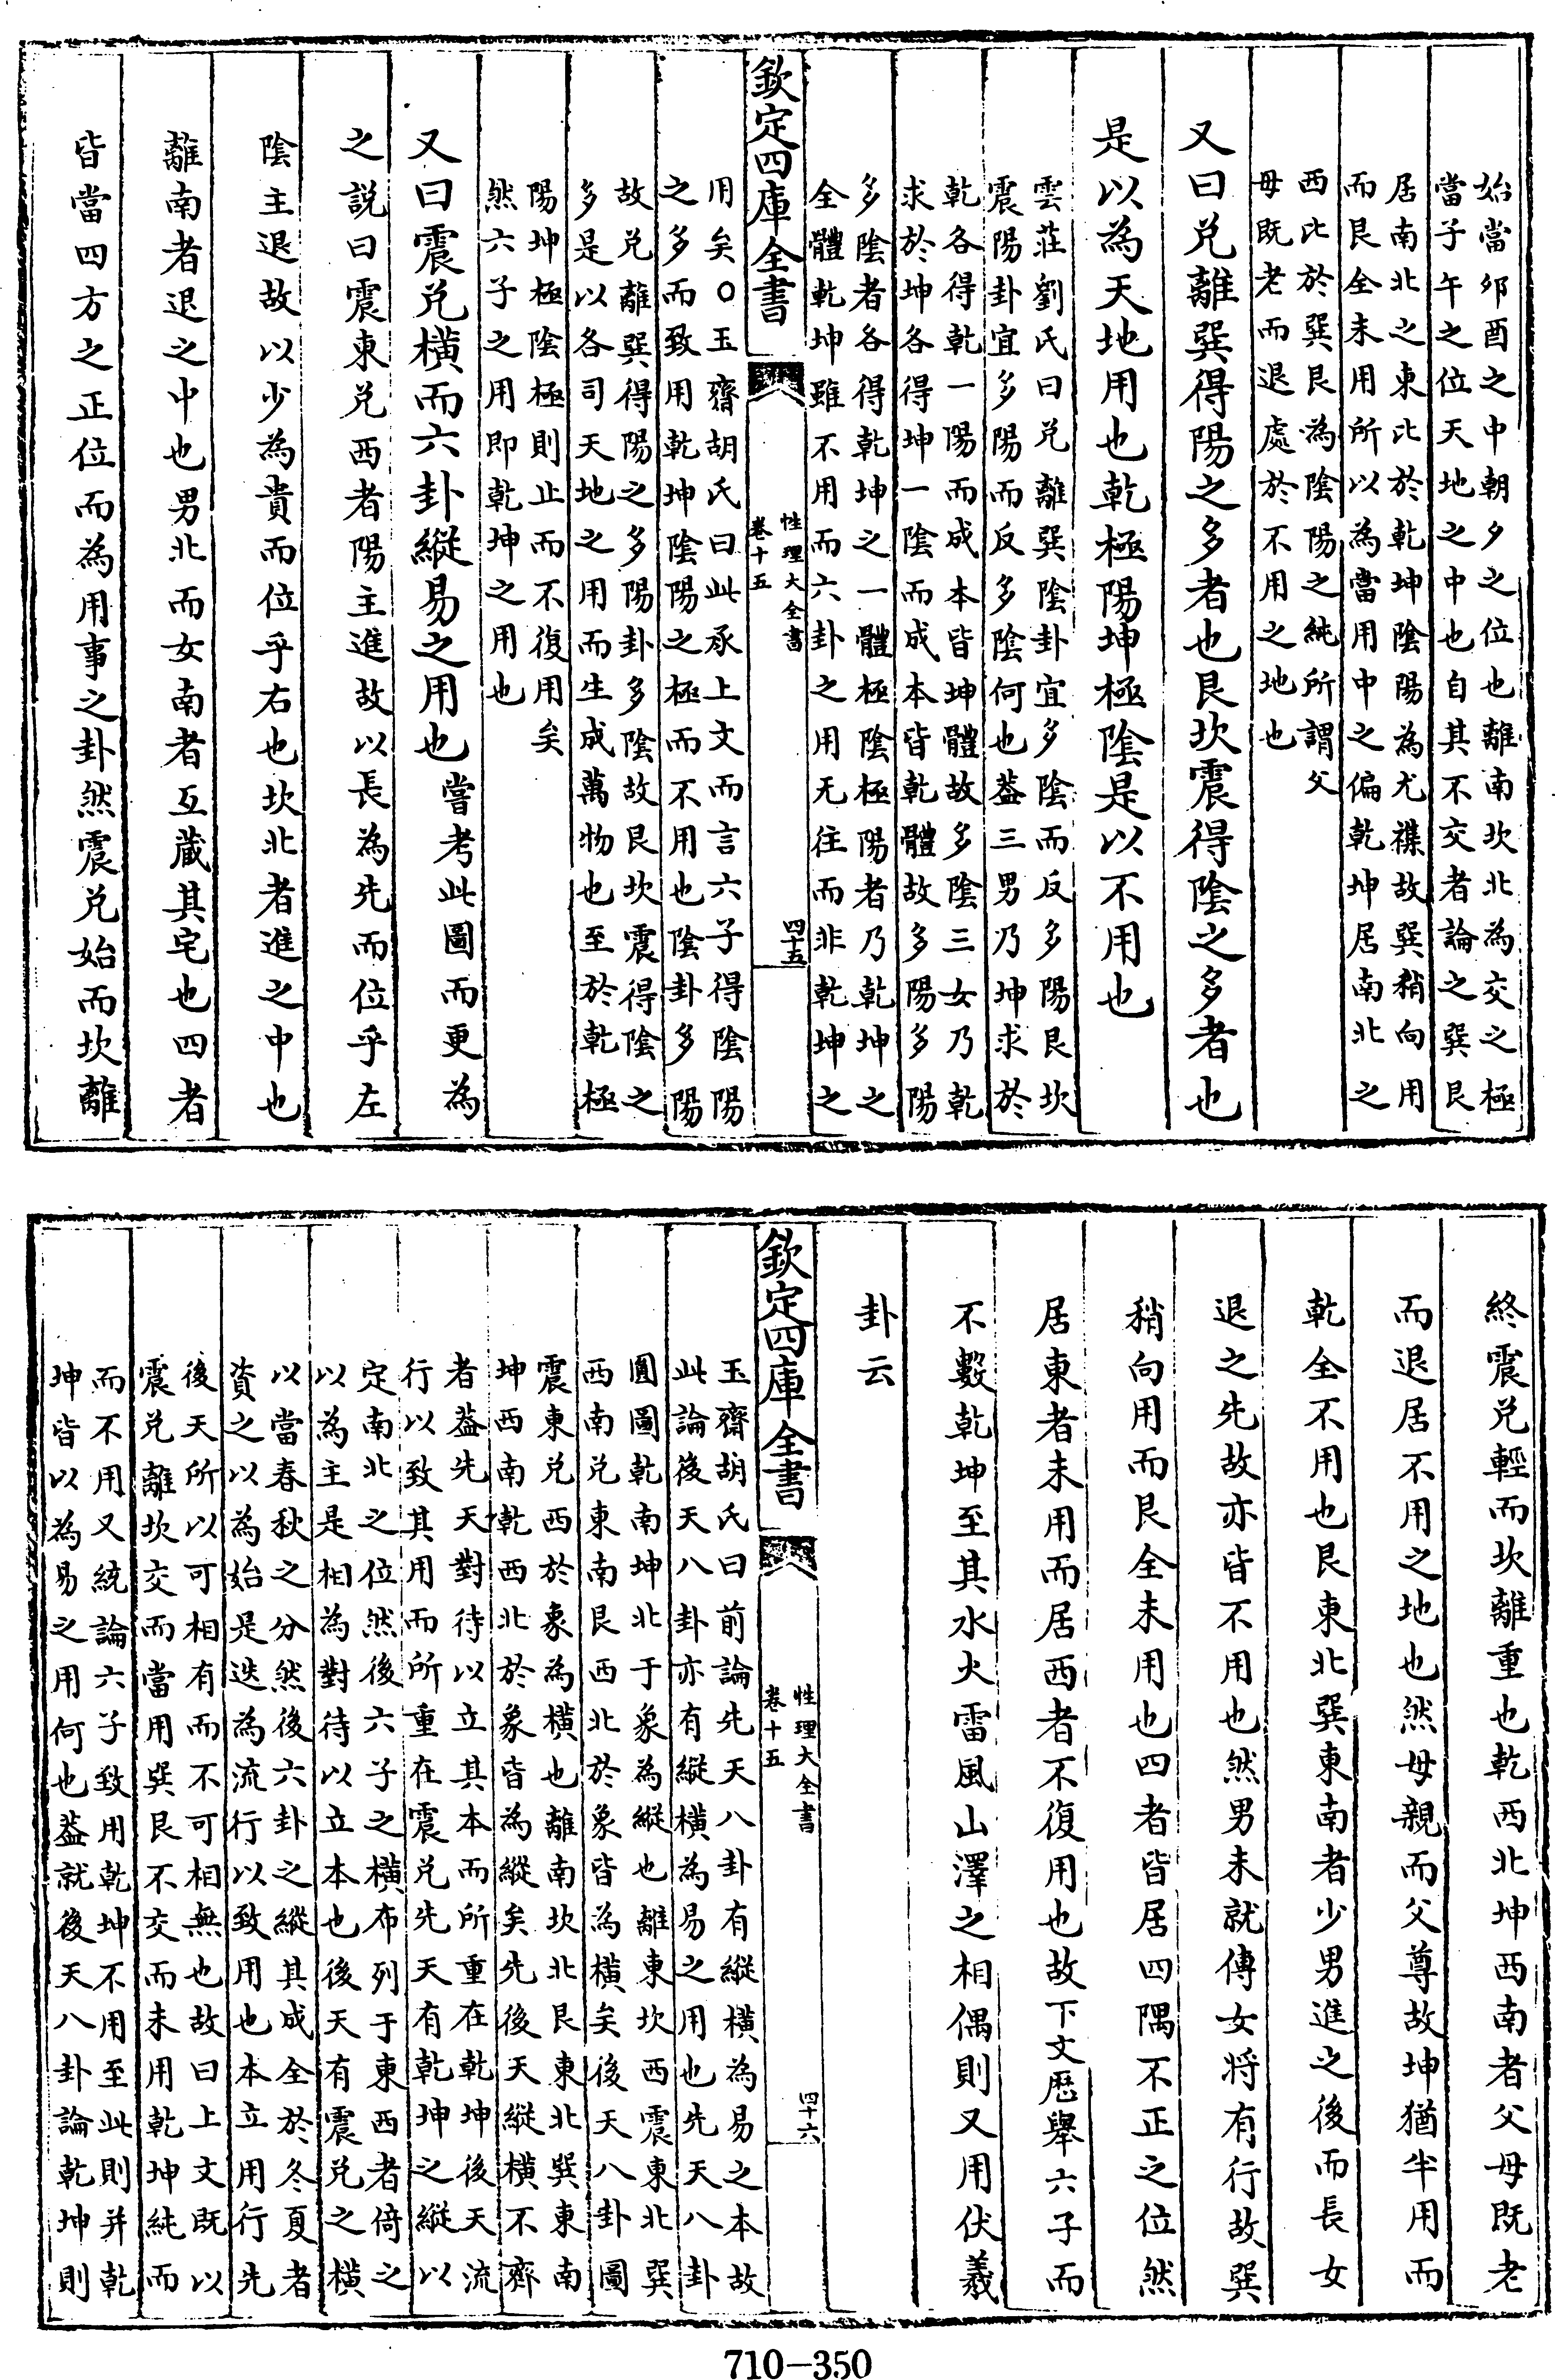 始當卯酉之中朝夕之位也離南坎北為交之極
當子午之位天地之中也自其不交者論之巽艮
居南北之東北於乾坤隂陽為尤襍故巽稍向用
而艮全未用所以為當用中之偏乾坤居南北之
西北於巽艮為陰陽之純所謂父
母既老而退處於不用之地也
又曰兌離巽得陽之多者也艮坎震得陰之多者也
是以為天地用也乾極陽坤極陰是以不用也
雲莊劉氏曰兌離巽陰卦宜多陰而反多陽艮坎
震陽卦宜多陽而反多陰何也葢三男乃坤求於
乾各得乾一陽而成本皆坤體故多陰三女乃乾
求於坤各得坤一陰而成本皆乾體故多陽多陽
多陰者各得乾坤之一體極陰極陽者乃乾坤之
全體乾坤雖不用而六卦之用无往而非乾坤之
欽定四庫全書
性理大全書
卷十五
四十五
用矣○玉齋胡氏曰此承上文而言六子得陰陽
之多而致用乾坤陰陽之極而不用也陰卦多陽
故兌離巽得陽之多陽卦多陰故艮坎震得陰之
多是以各司天地之用而生成萬物也至於乾極
陽坤極陰極則止而不復用矣
然六子之用即乾坤之用也
又曰震兌橫而六卦縱易之用也嘗考此圖而更為
之説曰震東兌西者陽主進故以長為先而位乎左
陰主退故以少為貴而位乎右也坎北者進之中也
離南者退之中也男北而女南者互藏其宅也四者
皆當四方之正位而為用事之卦然震兌始而坎離
終震兌輕而坎離重也乾西北坤西南者父母既老
而退居不用之地也然母親而父尊故坤猶半用而
乾全不用也艮東北巽東南者少男進之後而長女
退之先故亦皆不用也然男未就傅女将有行故巽
稍向用而艮全未用也四者皆居四隅不正之位然
居東者未用而居西者不復用也故下文歷舉六子而
不數乾坤至其水火雷風山澤之相偶則又用伏羲
卦云
欽定四庫全書
性理大全書
卷十五
四十六
玉齋胡氏曰前論先天八卦有縱橫為易之本故
此論後天八卦亦有縱橫為易之用也先天八卦
圓圖乾南坤北于象為縱也離東坎西震東北巽
西南兌東南艮西北於象皆為橫矣後天八卦圖
震東兌西於象為橫也離南坎北艮東北巽東南
坤西南乾西北於象皆為縱矣先後天縱橫不齊
者葢先天對待以立其本而所重在乾坤後天流
行以致其用而所重在震兌先天有乾坤之縱以
定南北之位然後六子之橫布列于東西者倚之
以為主是相為對待以立本也後天有震兌之橫
以當春秋之分然後六卦之縱其成全於冬夏者
資之以為始是迭為流行以致用也本立用行先
後天所以可相有而不可相無也故曰上文既以
震兌離坎交而當用巽艮不交而未用乾坤純而
而不用又統論六子致用乾坤不用至此則并乾
坤皆以為易之用何也葢就後天八卦論乾坤則
710-350